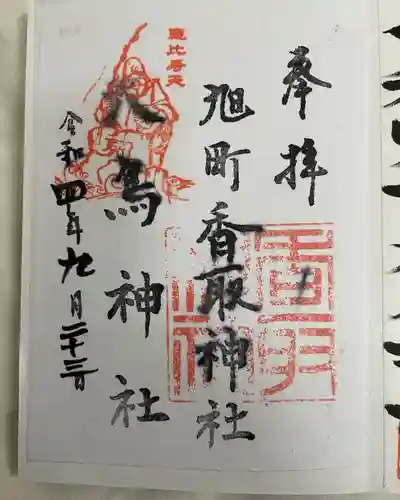 奉拝
旭町香取神社
恵比寿天
大鳥神社
令和四年九月二十三日